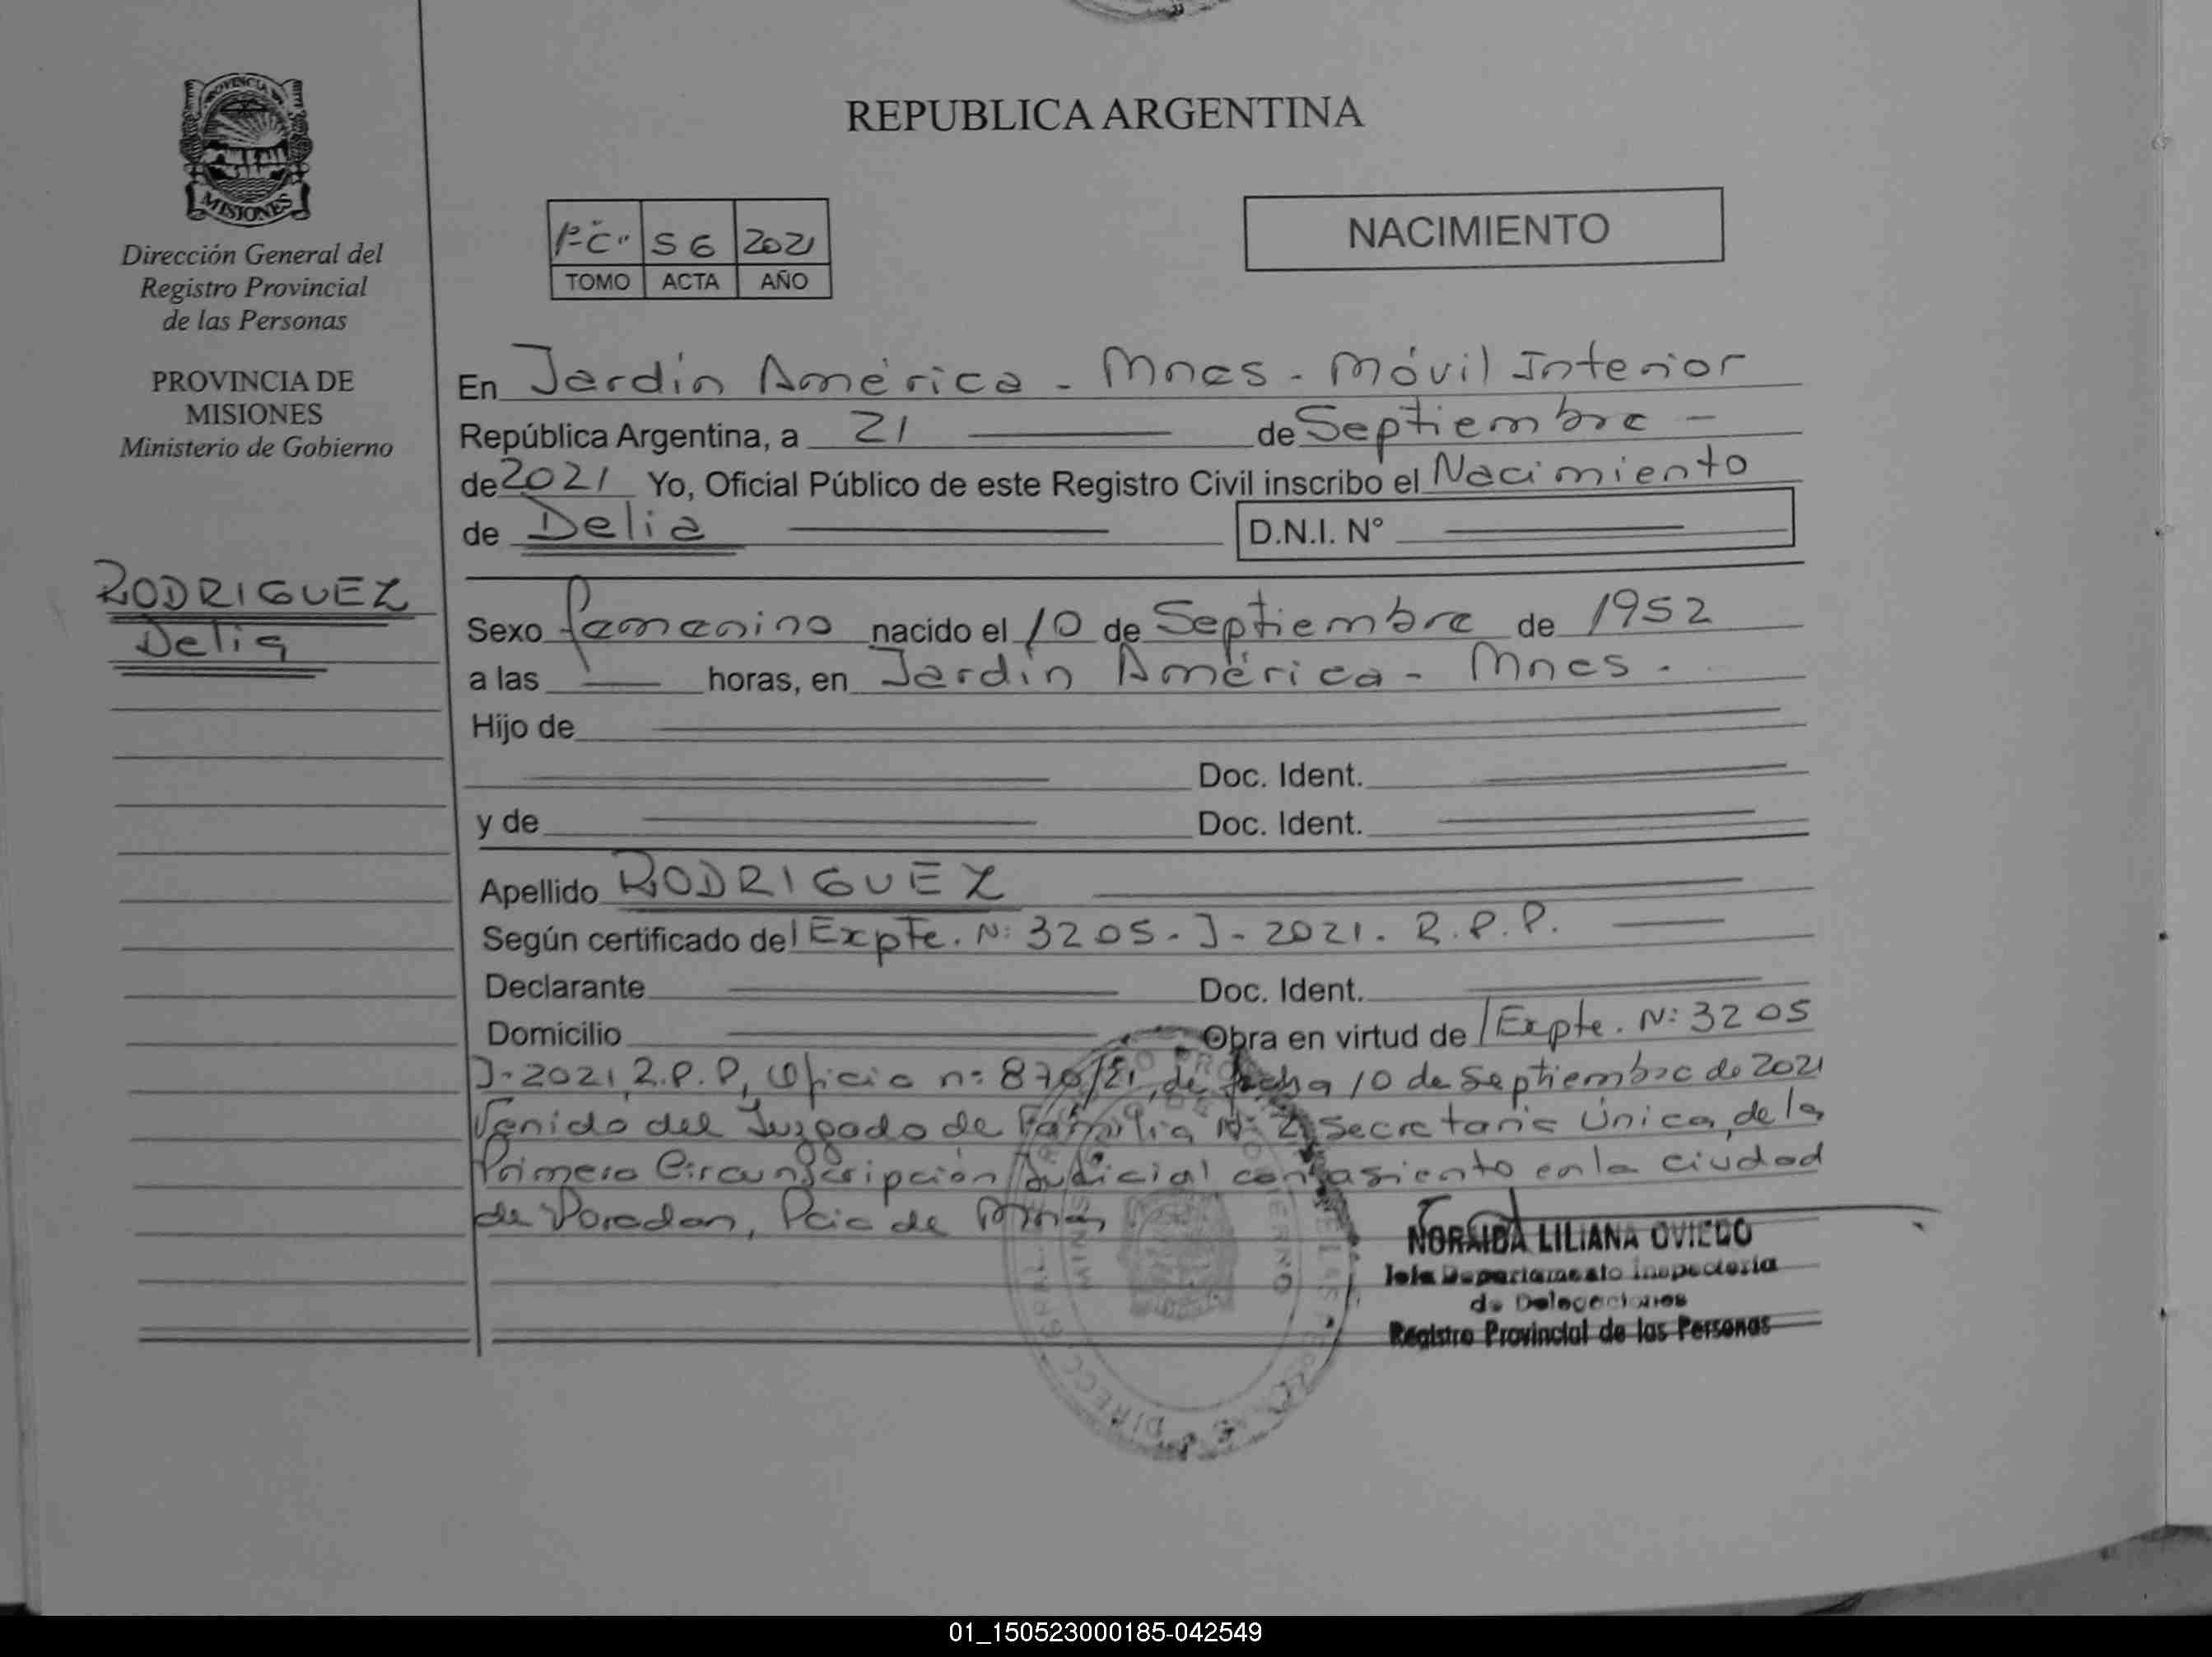 PROVINCIA DE
MISIONES
Dirección General del
Registro Provincial
de las Personas
PROVINCIA DE
MISIONES
Ministerio de Gobierno
RODRIGUEZ
Delia
REPUBLICA ARGENTINA
1º "C" 56 2021
TOMO ACTA AÑO
NACIMIENTO
En Jardín América - Mnes - Móvil Interior
República Argentina, a 21 de Septiembre -
de 2021 Yo, Oficial Público de este Registro Civil inscribo el Nacimiento
de Delia D.N.I. N°
Sexo femenino nacido el 10 de Septiembre de 1952
a las horas, en Jardín América - Mnes.
Hijo de
Doc. Ident.
y de Doc. Ident.
Apellido RODRIGUEZ
Según certificado del Expte. Nº 3205 - J - 2021. R.P.P.
Declarante Doc. Ident.
Domicilio Obra en virtud de Expte. Nº 3205
J-2021 R.P.P, Oficio nº 870/21, de fecha 10 de Septiembre de 2021
Venido del Juzgado de Familia Nº 2, Secretaria Única, de la
Primera Circunscripción Judicial con asiento en la ciudad
de Posadas, Pcia de Mnes
NORAIDA LILIANA OVIEDO
Jefa Departamento Inspectoria
de Delegaciones
Registro Provincial de las Personas
01_150523000185-042549